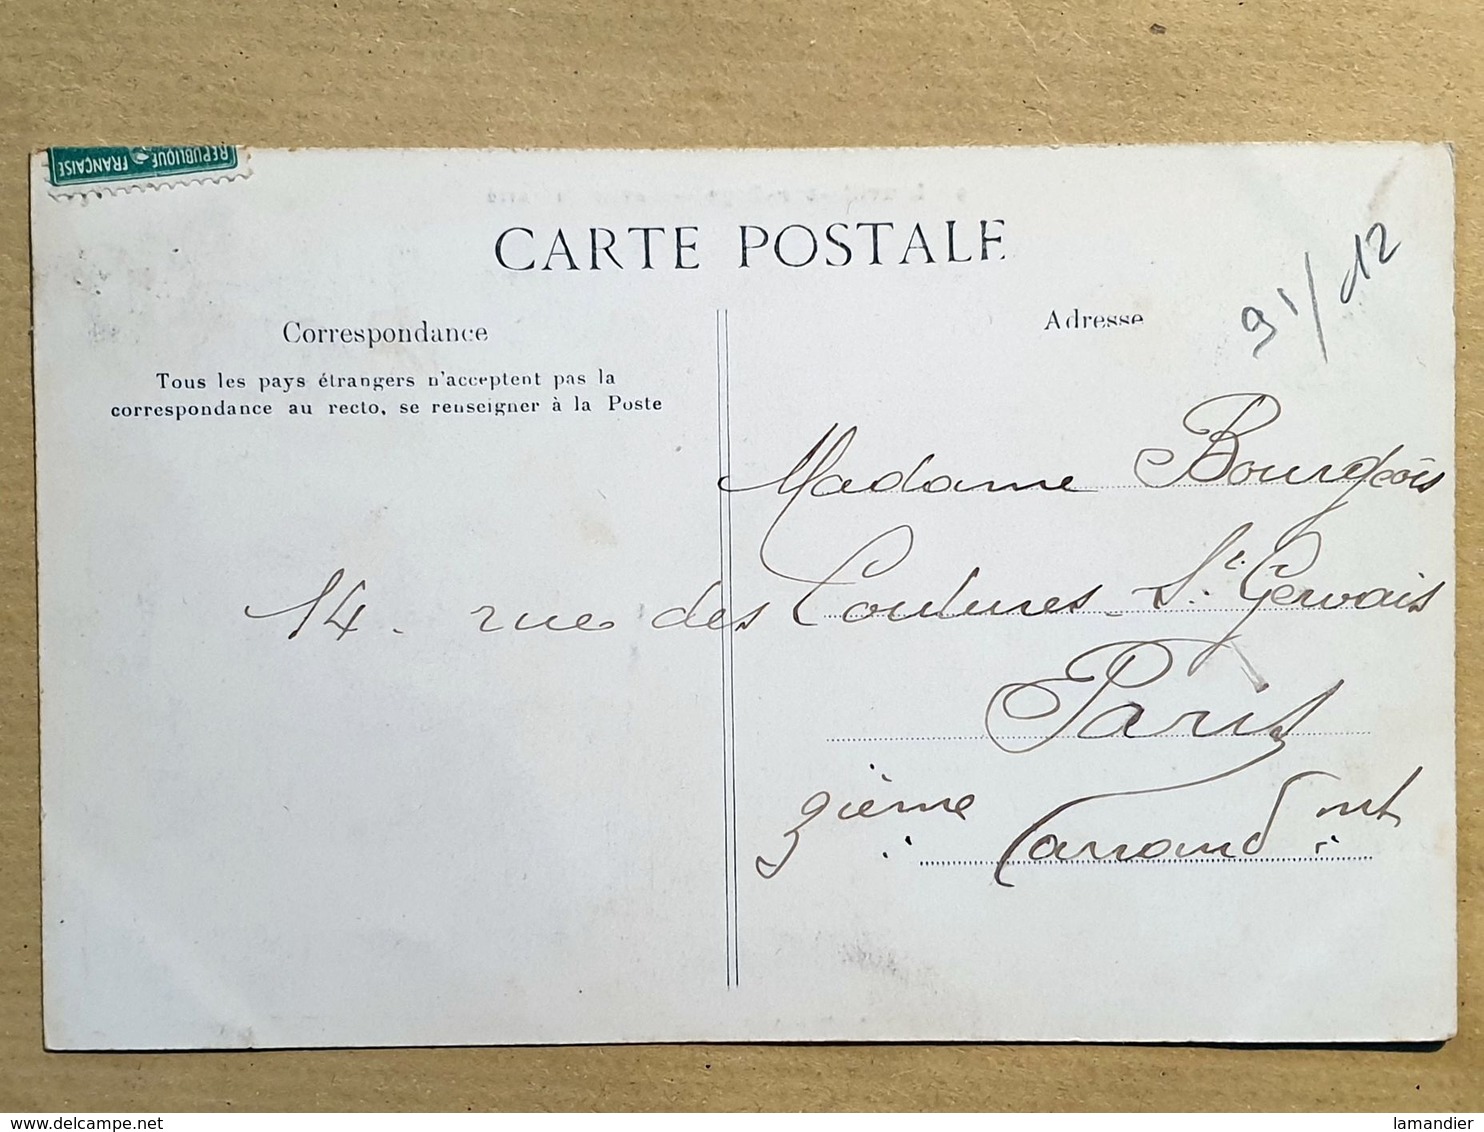 RÉPUBLIQUE FRANÇAISE
CARTE POSTALE
Correspondance
Tous les pays étrangers n'acceptent pas la
correspondance au recto, se renseigner à la Poste
Adresse
91/12
Madame Bourgeois
14. rue des Coutures St. Gervais
Paris
3ième
delcampe.net
lamandier